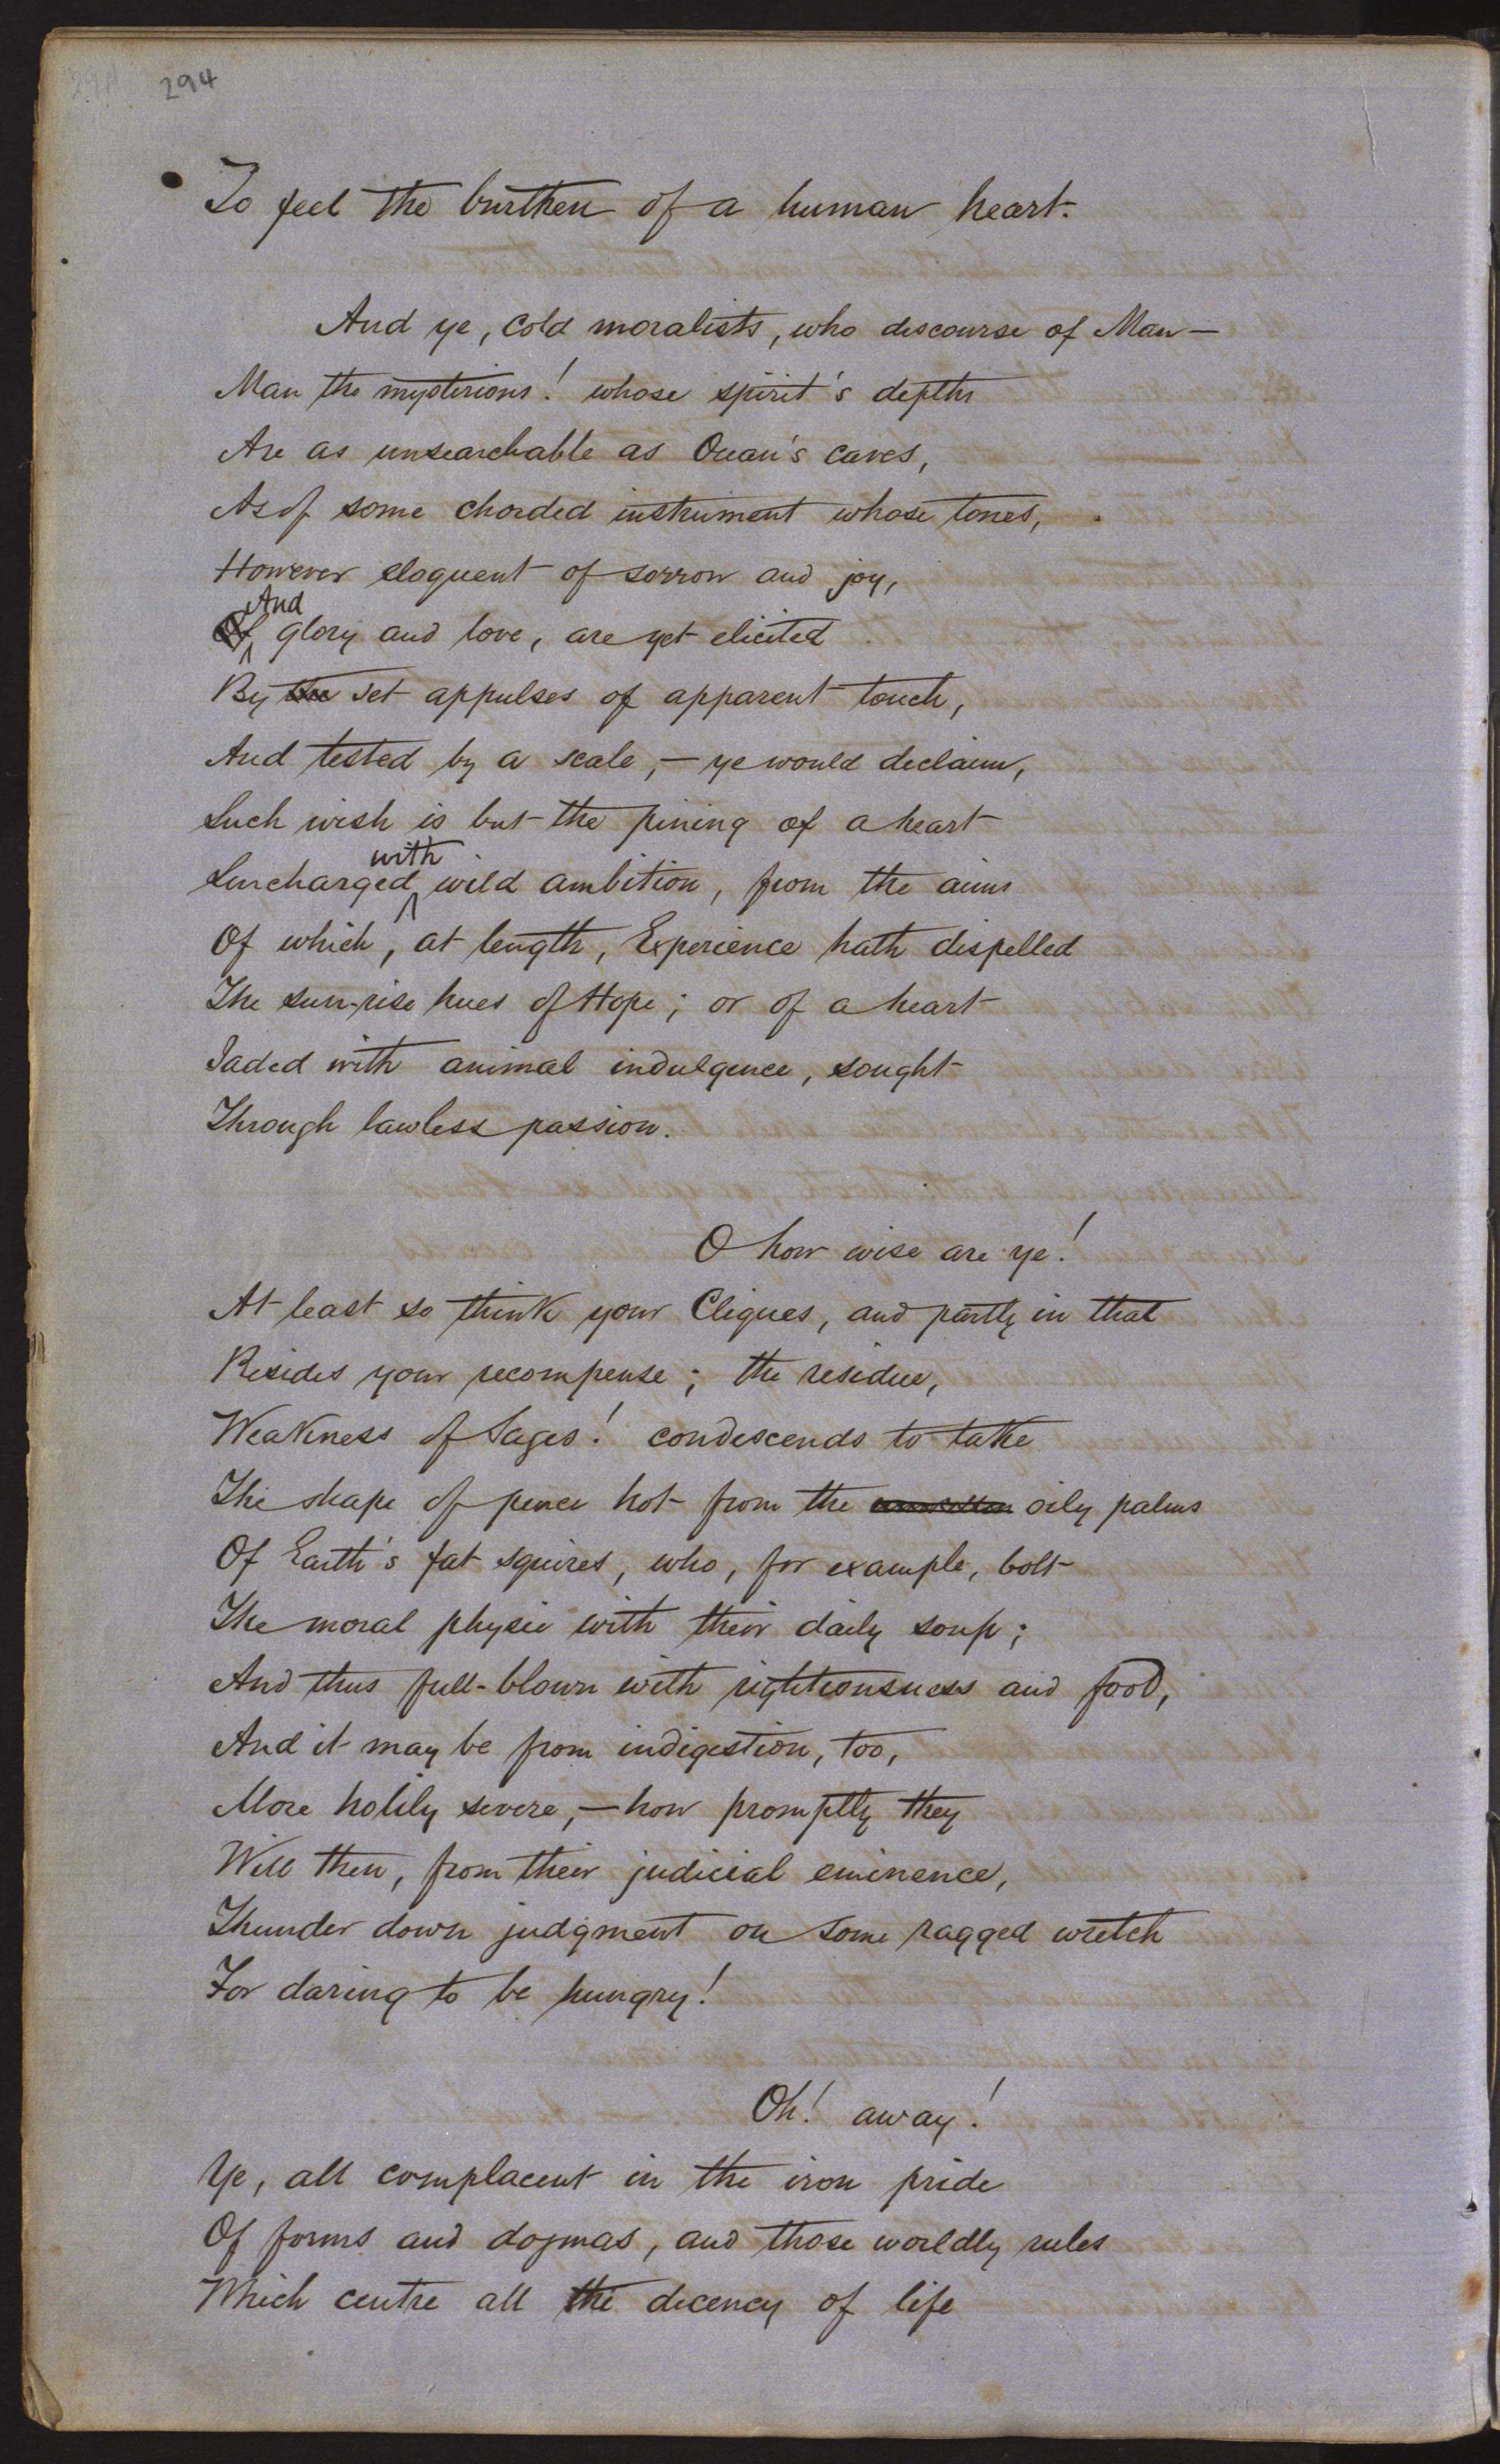 294
To feel the burthen of a human heart.
And ye, cold moralists, who discourse of Man—
Man the mysterious! whose spirit's depths
Are as unsearchable as Ocean's caves,
As of some chorded instrument whose tones,
However eloquent of sorrow and joy,
And
Of glory and love, are yet elicited
By the set appulses of apparent touch,
And tested by a scale,— ye would declaim,
Such wish is but the pining of a heart
with
Surcharged wild ambition, from the aims
Of which, at length, Experience hath dispelled
The sun-rise hues of Hope; or of a heart
Jaded with animal indulgence, sought
Through lawless passion.
O how wise are ye!
At least so think your Cliques, and partly in that
Resides your recompense; the residue,
Weakness of Sages! condescends to take
The shape of pence hot from the oily palms
Of Earth's fat squires, who, for example, bolt
The moral physic with their daily soup;
And thus full-blown with rightiousness and food,
And it may be from indigestion, too,
More holily severe,— how promptly they
Will then, from their judicial eminence,
Thunder down judgment on some ragged wretch
For daring to be hungry!
Oh! away!
Ye, all complacent in the iron pride
Of forms and dogmas, and those worldly rules
Which centre all the decency of life